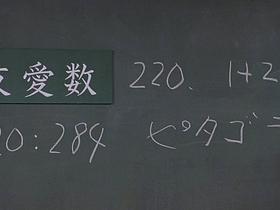 友愛数
220. 1+2
20:284 ピタゴラ